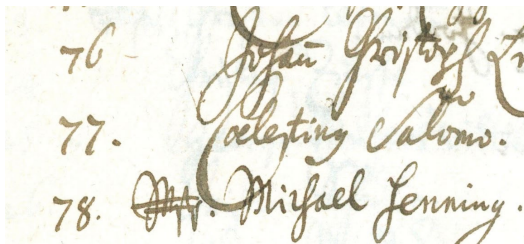 76 - Johan̄ Christoph
77. Coelestin9 Salomo.
78. Michael Henning.